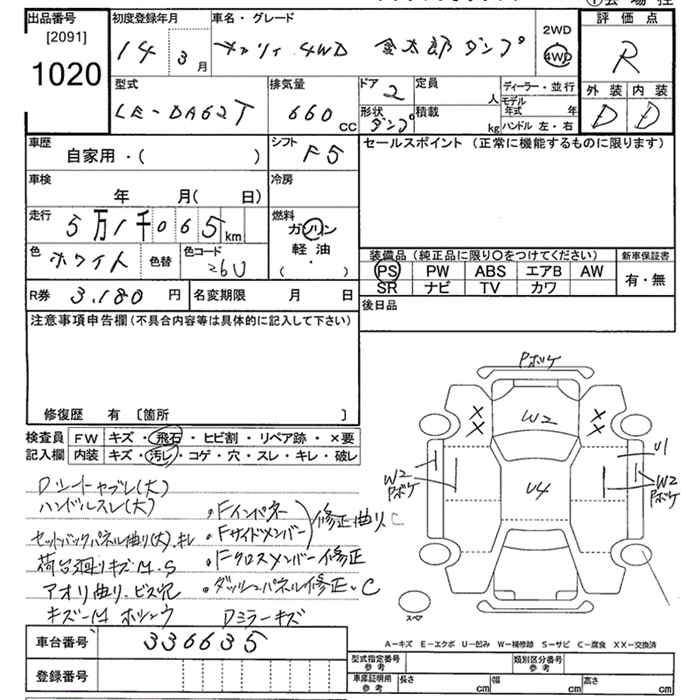 出品番号
[2091]
1020
初度登録年月
14年3月
車名・グレード
キャリィ 4WD 金太郎ダンプ
2WD
4WD
評価点
R
型式
LE-DA62T
排気量
660 CC
ドア
2
形状
ダンプ
定員
人
積載
kg
ディーラー・並行
モデル年式 年
ハンドル 左・右
外装 内装
D D
車歴
自家用・( )
シフト
F5
セールスポイント(正常に機能するものに限ります)
車検
年 月( 日)
冷房
走行
5万1千065 km
燃料
ガソリン
軽油
・
( )
色
ホワイト
色替
色コード
26U
装備品(純正品に限り○をつけてください)
新車保証書
PS PW ABS エアB AW
SR ナビ TV カワ
有・無
R券 3,180 円
名変期限 月 日
後日品
注意事項申告欄(不具合内容等は具体的に記入して下さい)
修復歴 有 [箇所 ]
検査員 FW キズ・飛石・ヒビ割・リペア跡・×要
記入欄 内装 キズ・汚レ・コゲ・穴・スレ・キレ・破レ
Dシートヤブレ(大)
ハンドルスレ(大)
セットバックパネル曲り(大)、キレ
荷台廻りキズM.S
アオリ曲り、ビス穴
キズ-M ホシュウ
Dミラーキズ
・Fインパネ
・Fサイドメンバー
修正曲り、C
・Fクロスメンバー修正
・ダッシュパネル修正、C
Pボケ
W2
U4
U1
W2
Pボケ
W2
Pボケ
スペア
A-キズ E-エクボ U-凹み W-補修跡 S-サビ C-腐食 XX-交換済
車台番号 336635
登録番号
型式指定番号
参考
類別区分番号
参考
車庫証明用
参考
長さ cm 幅 cm 高さ cm